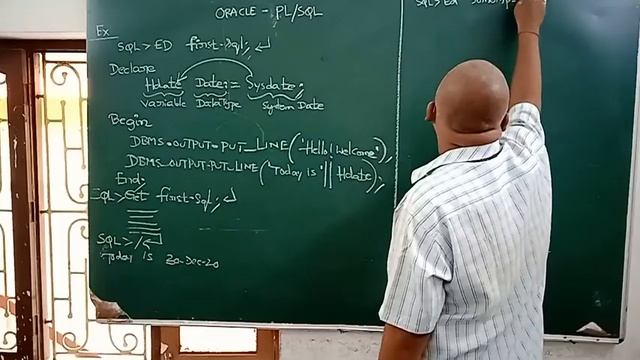 ORACLE - PL/SQL
Ex
SQL> ED first.sql;
Declare
Hdate Date := Sysdate;
Variable DataType System Date
Begin
DBMS.OUTPUT.PUT_LINE('Hello! Welcome');
DBMS.OUTPUT.PUT_LINE('Today is' || Hdate);
End;
SQL> Get first.sql;
SQL> /
Today is 20-Dec-20
SQL> Ed